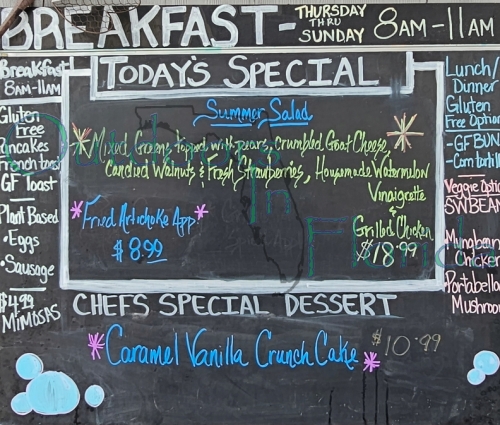 BREAKFAST - THURSDAY THRU SUNDAY 8AM-11AM
Breakfast
8AM-11AM
Gluten
Free
Pancakes
French toast
GF Toast
Plant Based
• Eggs
• Sausage
$4.99
MIMOSAS
TODAY'S SPECIAL
Summer Salad
Mixed Greens topped with pears, crumbled Goat Cheese,
Candied Walnuts & Fresh Strawberries, Housemade Watermelon
Vinaigrette
&
Grilled Chicken
$18.99
Fried Artichoke App.
$8.99
CHEFS SPECIAL DESSERT
Caramel Vanilla Crunch Cake $10.99
Lunch/
Dinner
Gluten
Free Option
-GF BUN
-Corn tortill
Veggie Optio
SW BEAN
Mungbean
Chicken
Portabella
Mushroom
Outdoors
In
Florida